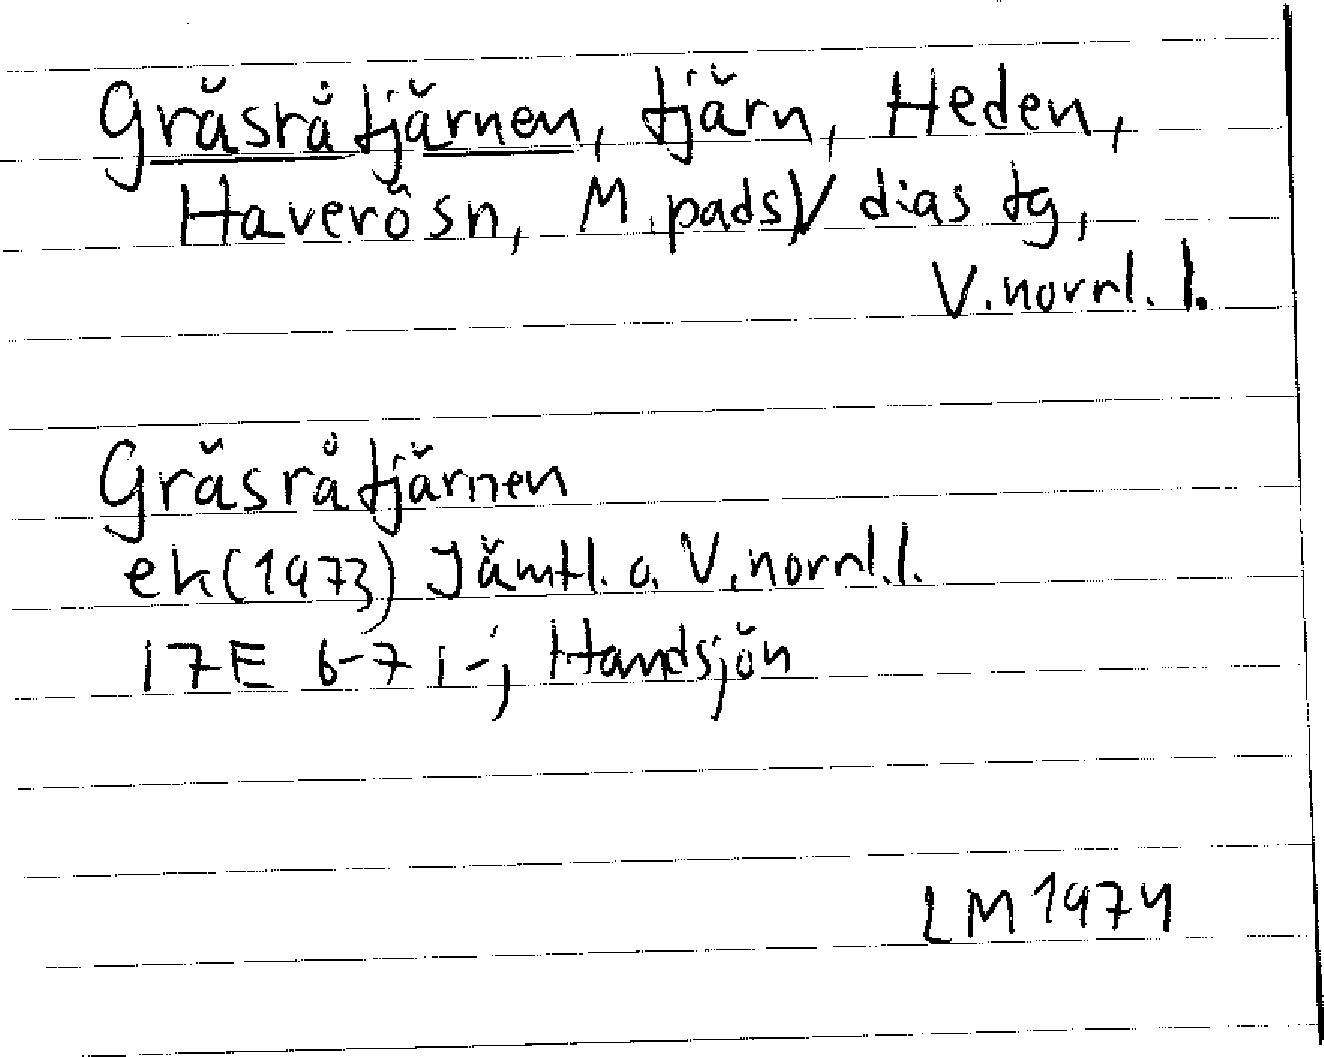 Gräsråtjärnen, tjärn, Heden,
Haverö sn, M pads V dias tg,
V. norrl. l.
Gräsråtjärnen
ek (1973) Jämtl. o. V. norrl. l.
17E 6-7 i-j Handsjön
LM 1974